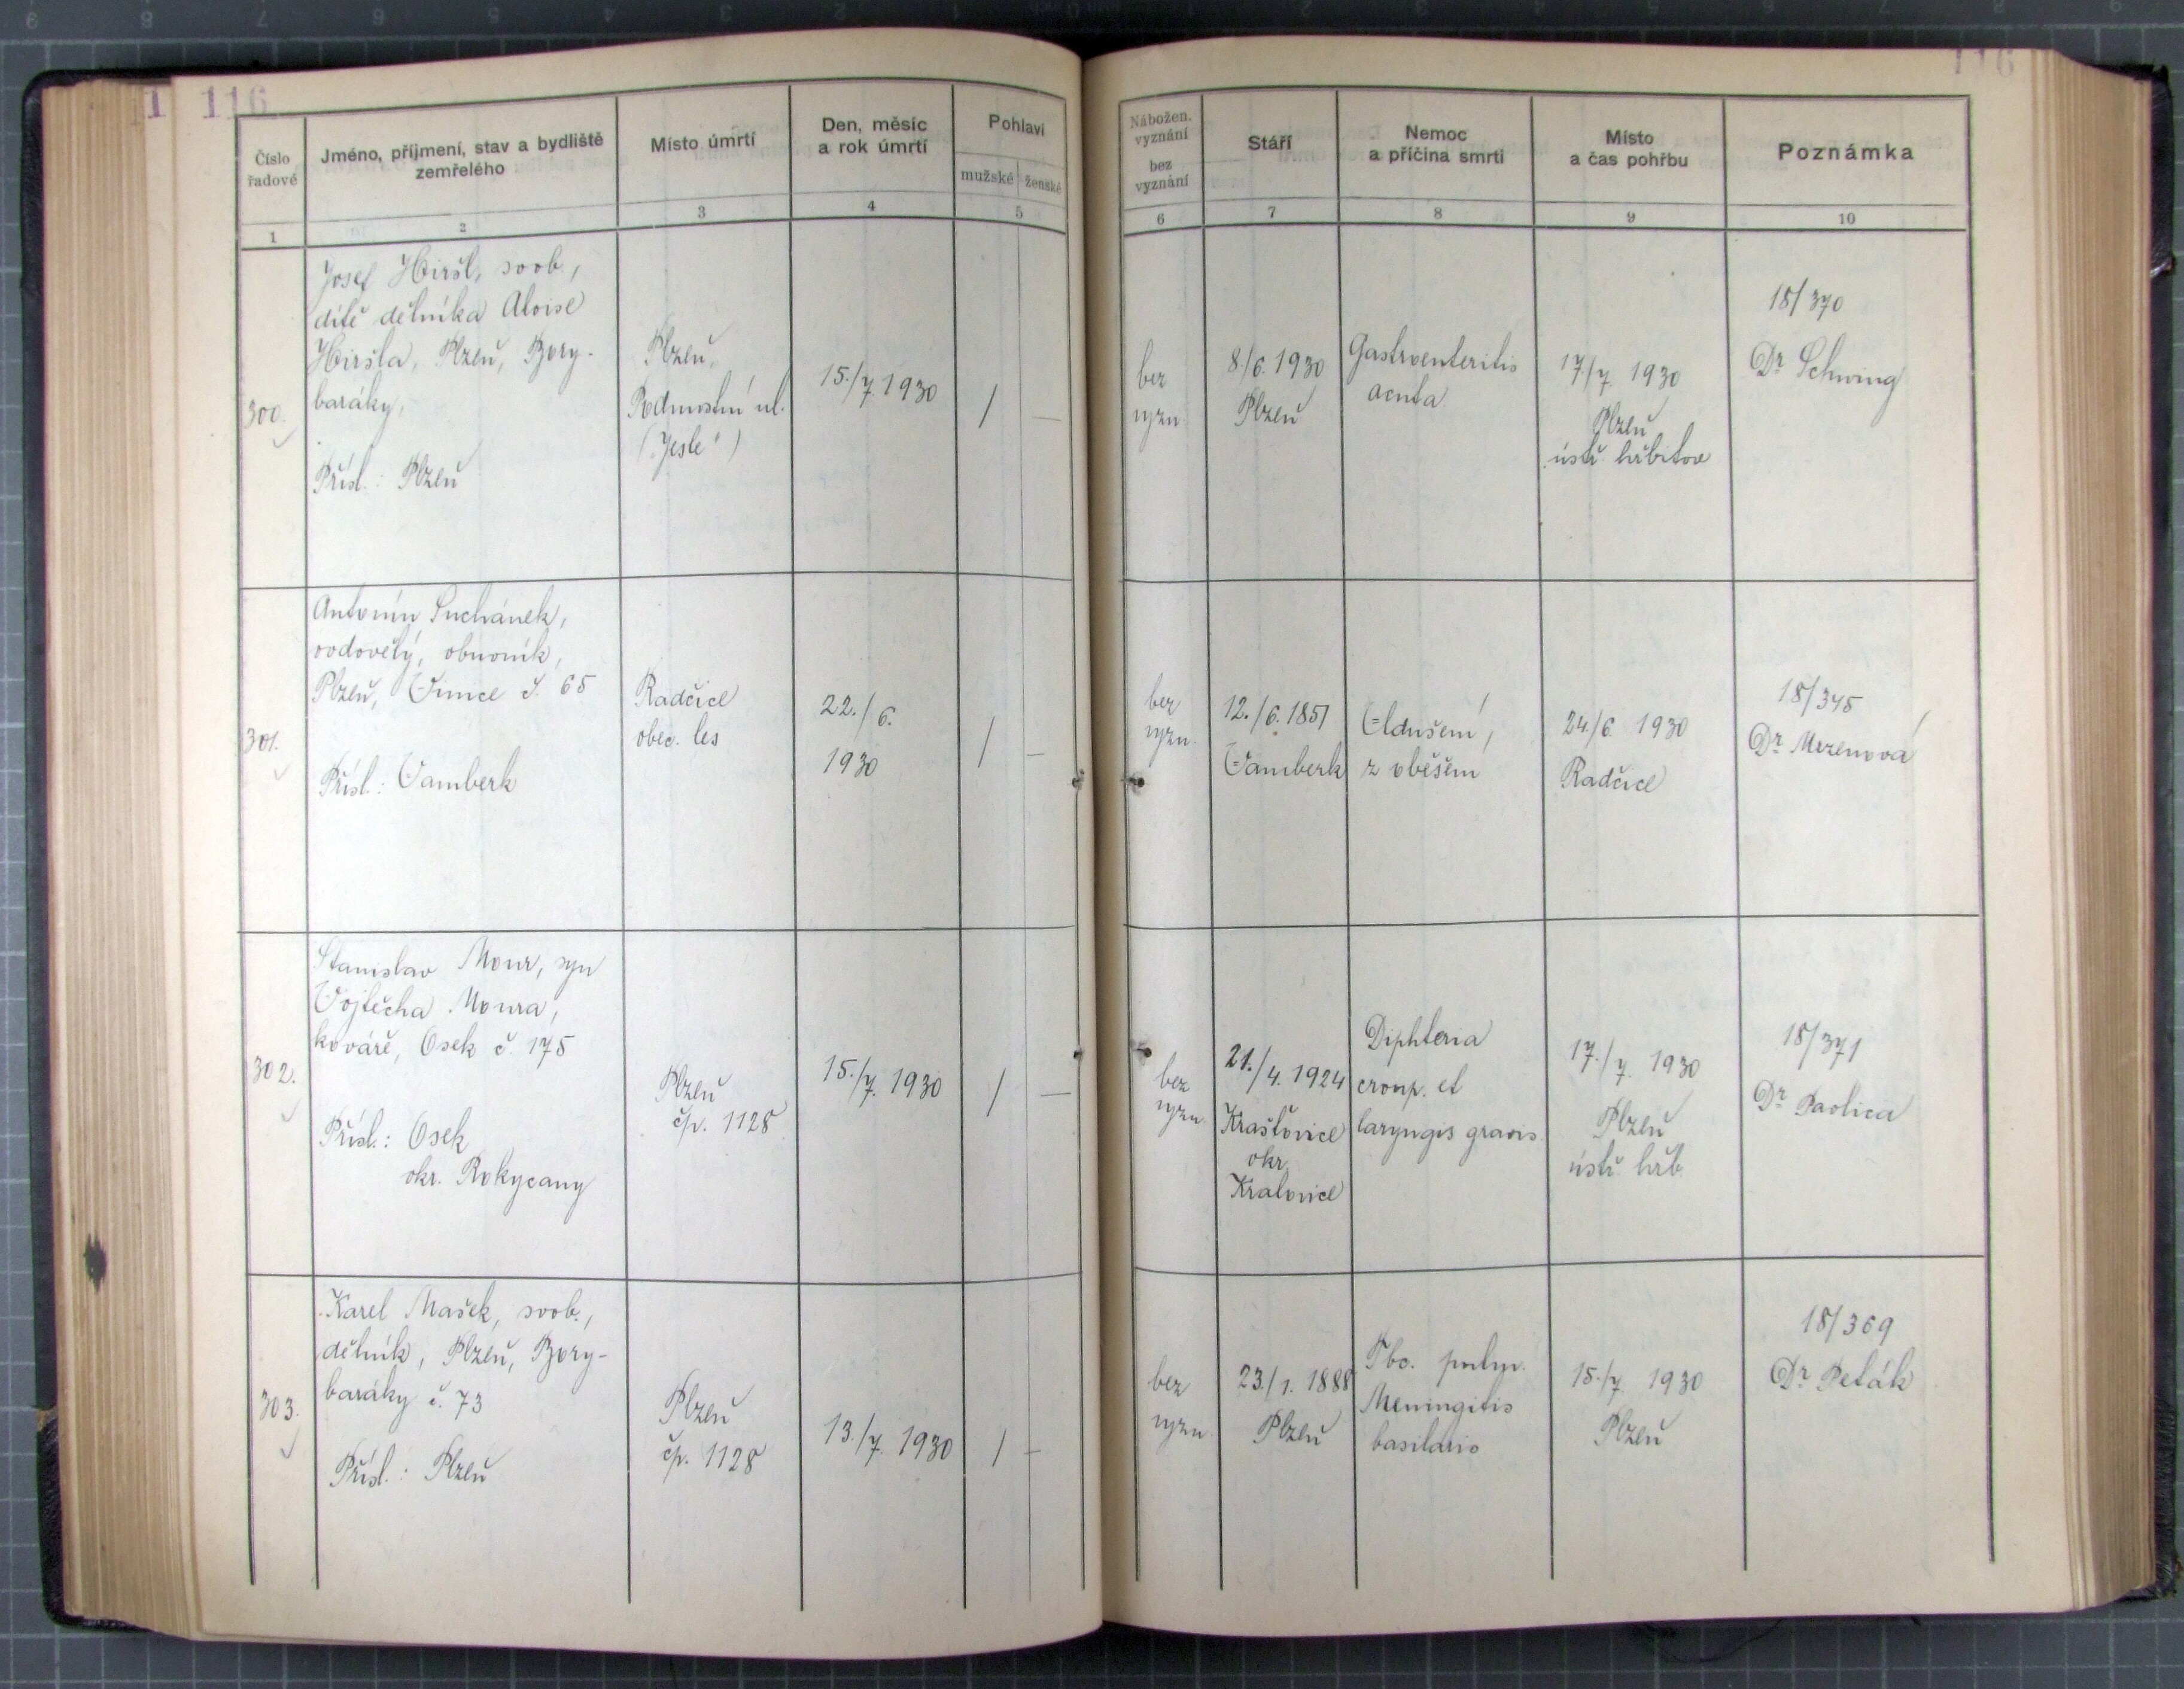 1 116
116
Číslo
řadové
Jméno, příjmení, stav a bydliště
zemřelého
Místo úmrtí
Den, měsíc
a rok úmrtí
Pohlaví
mužské ženské
Nábožen.
vyznání
bez
vyznání
Stáří
Nemoc
a příčina smrti
Místo
a čas pohřbu
Poznámka
1 2 3 4 5 6 7 8 9 10
300.
Josef Hiršl, svob.,
dítě dělníka Aloise
Hiršla, Plzeň, Bory-
baráky,
Přísl.: Plzeň
Plzeň,
Podmostní ul.
("Jesle")
15./7. 1930
/ —
bez
vyzn.
8./6. 1930
Plzeň
Gastroenteritis
acuta
17./7. 1930
Plzeň
ústř. hřbitov
18/370
Dr Schwing
301.
Antonín Suchánek,
vdovělý, obuvník,
Plzeň, č. 65
Přísl.: Vamberk
Radčice
obec. les
22./6.
1930
/ —
bez
vyzn.
12./6. 1851
Vamberk
Udušení,
z oběšení
24./6. 1930
Radčice
18/345
Dr
302.
Stanislav Mour, syn
Vojtěcha Moura,
kováře, Osek č. 175
Přísl.: Osek
okr. Rokycany
Plzeň
čp. 1128
15./7. 1930
/ —
bez
vyzn.
21./4. 1924
Kraštovice
okr.
Kralovice
Diphteria
croup. et
laryngis gravis
17./7. 1930
Plzeň
ústř. hřb.
18/371
Dr Pavlica
303.
Karel Mašek, svob.,
dělník, Plzeň, Bory-
baráky č. 73
Přísl.: Plzeň
Plzeň
čp. 1128
13./7. 1930
/ —
bez
vyzn.
23./1. 1888
Plzeň
Tbc. pulm.
Meningitis
basilaris
15./7. 1930
Plzeň
18/369
Dr Peták